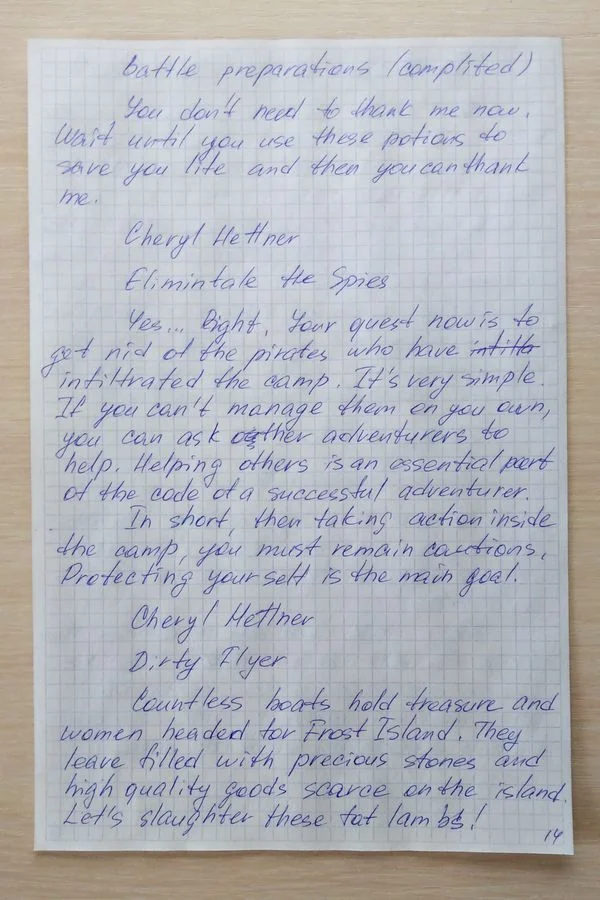 Battle preparations (complited)
You don't need to thank me now.
Wait until you use these potions to
save you life and then you can thank
me.
Cheryl Hettner
Elimintale the Spies
Yes... Right, Your quest now is to
get rid of the pirates who have intilta
infiltrated the camp. It's very simple.
If you can't manage them on you own,
you can ask other adventurers to
help. Helping others is an essential part
of the code of a successful adventurer.
In short, then taking action inside
the camp, you must remain cautions.
Protecting yourself is the main goal.
Cheryl Hettner
Dirty Flyer
Countless boats hold treasure and
women headed for Frost Island. They
leave filled with precious stones and
high quality goods scarce on the island.
Let's slaughter these fat lambs!
14